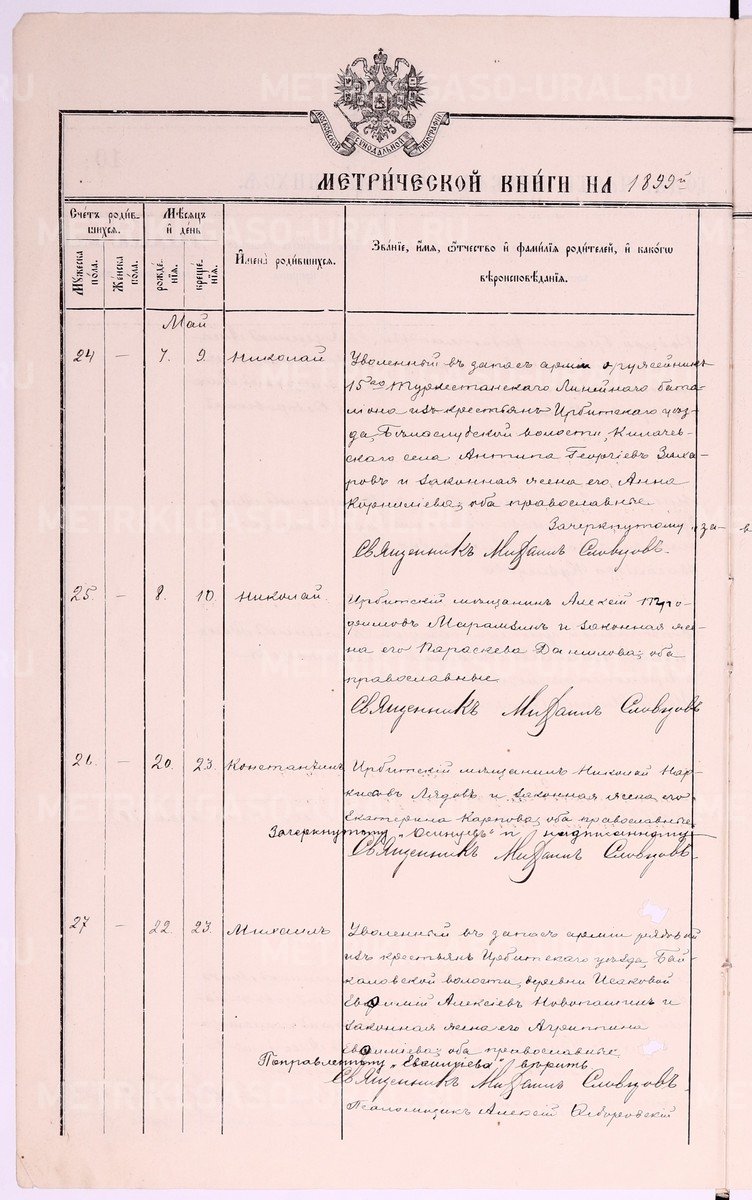 МОСКОВСКОЙ СѴНОДАЛЬНОЙ ТИПОГРАФІИ
МЕТРИЧЕСКОЙ КНИГИ НА 1899й
Счетъ родившихся.
Мѣсяцъ и день
Имена родившихся.
Званіе, имя, отчество и фамилія родителей, и какого вѣроисповѣданія.
Мужеска пола.
Женска пола.
рожденія.
крещенія.
Май
24 — 7. 9. Николай
Уволенный въ запасъ арміи оружейникъ
15го Туркестанскаго Линейнаго бата-
ліона изъ крестьянъ Ирбитскаго уѣз-
да, Бѣлослудской волости, Килачев-
скаго села Антипа Георгіевъ Заха-
ровъ и законная жена его Анна
Корниліева; оба православные.
Зачеркнутому „за-
Священникъ Михаилъ Словцовъ.
25. — 8. 10. Николай.
Ирбитскій мѣщанинъ Алексѣй
Марамзинъ и законная же-
на его Параскева Данилова; оба
православные.
Священникъ Михаилъ Словцовъ
26. — 20. 23. Константинъ
Ирбитскій мѣщанинъ Николай Нар-
кисовъ Лядовъ и законная жена его
Екатерина Карпова; оба православные.
Зачеркнутому и надписанному
Священникъ Михаилъ Словцовъ.
27 — 22. 23. Михаилъ
Уволенный въ запасъ арміи рядовой
изъ крестьянъ Ирбитскаго уѣзда, Бай-
каловской волости, деревни Исаковой
Евѳимій Алексѣевъ Новопашинъ и
законная жена его Агриппина
Евѳиміева; оба православные.
Поправленному вѣрить
Священникъ Михаилъ Словцовъ.
Псаломщикъ Алексѣй